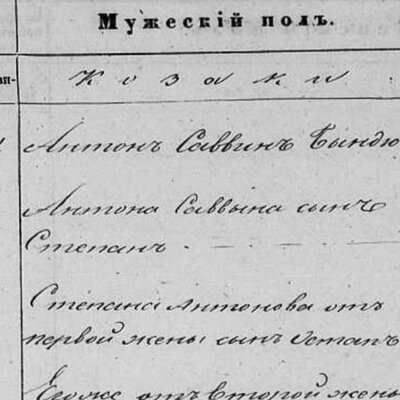 Мужескій полъ.
Козаки
Антонъ Саввинъ
Антона Саввына сынъ
Степанъ
Степана Антонова отъ
первой жены сынъ Остапъ
Егоже отъ Второй жены